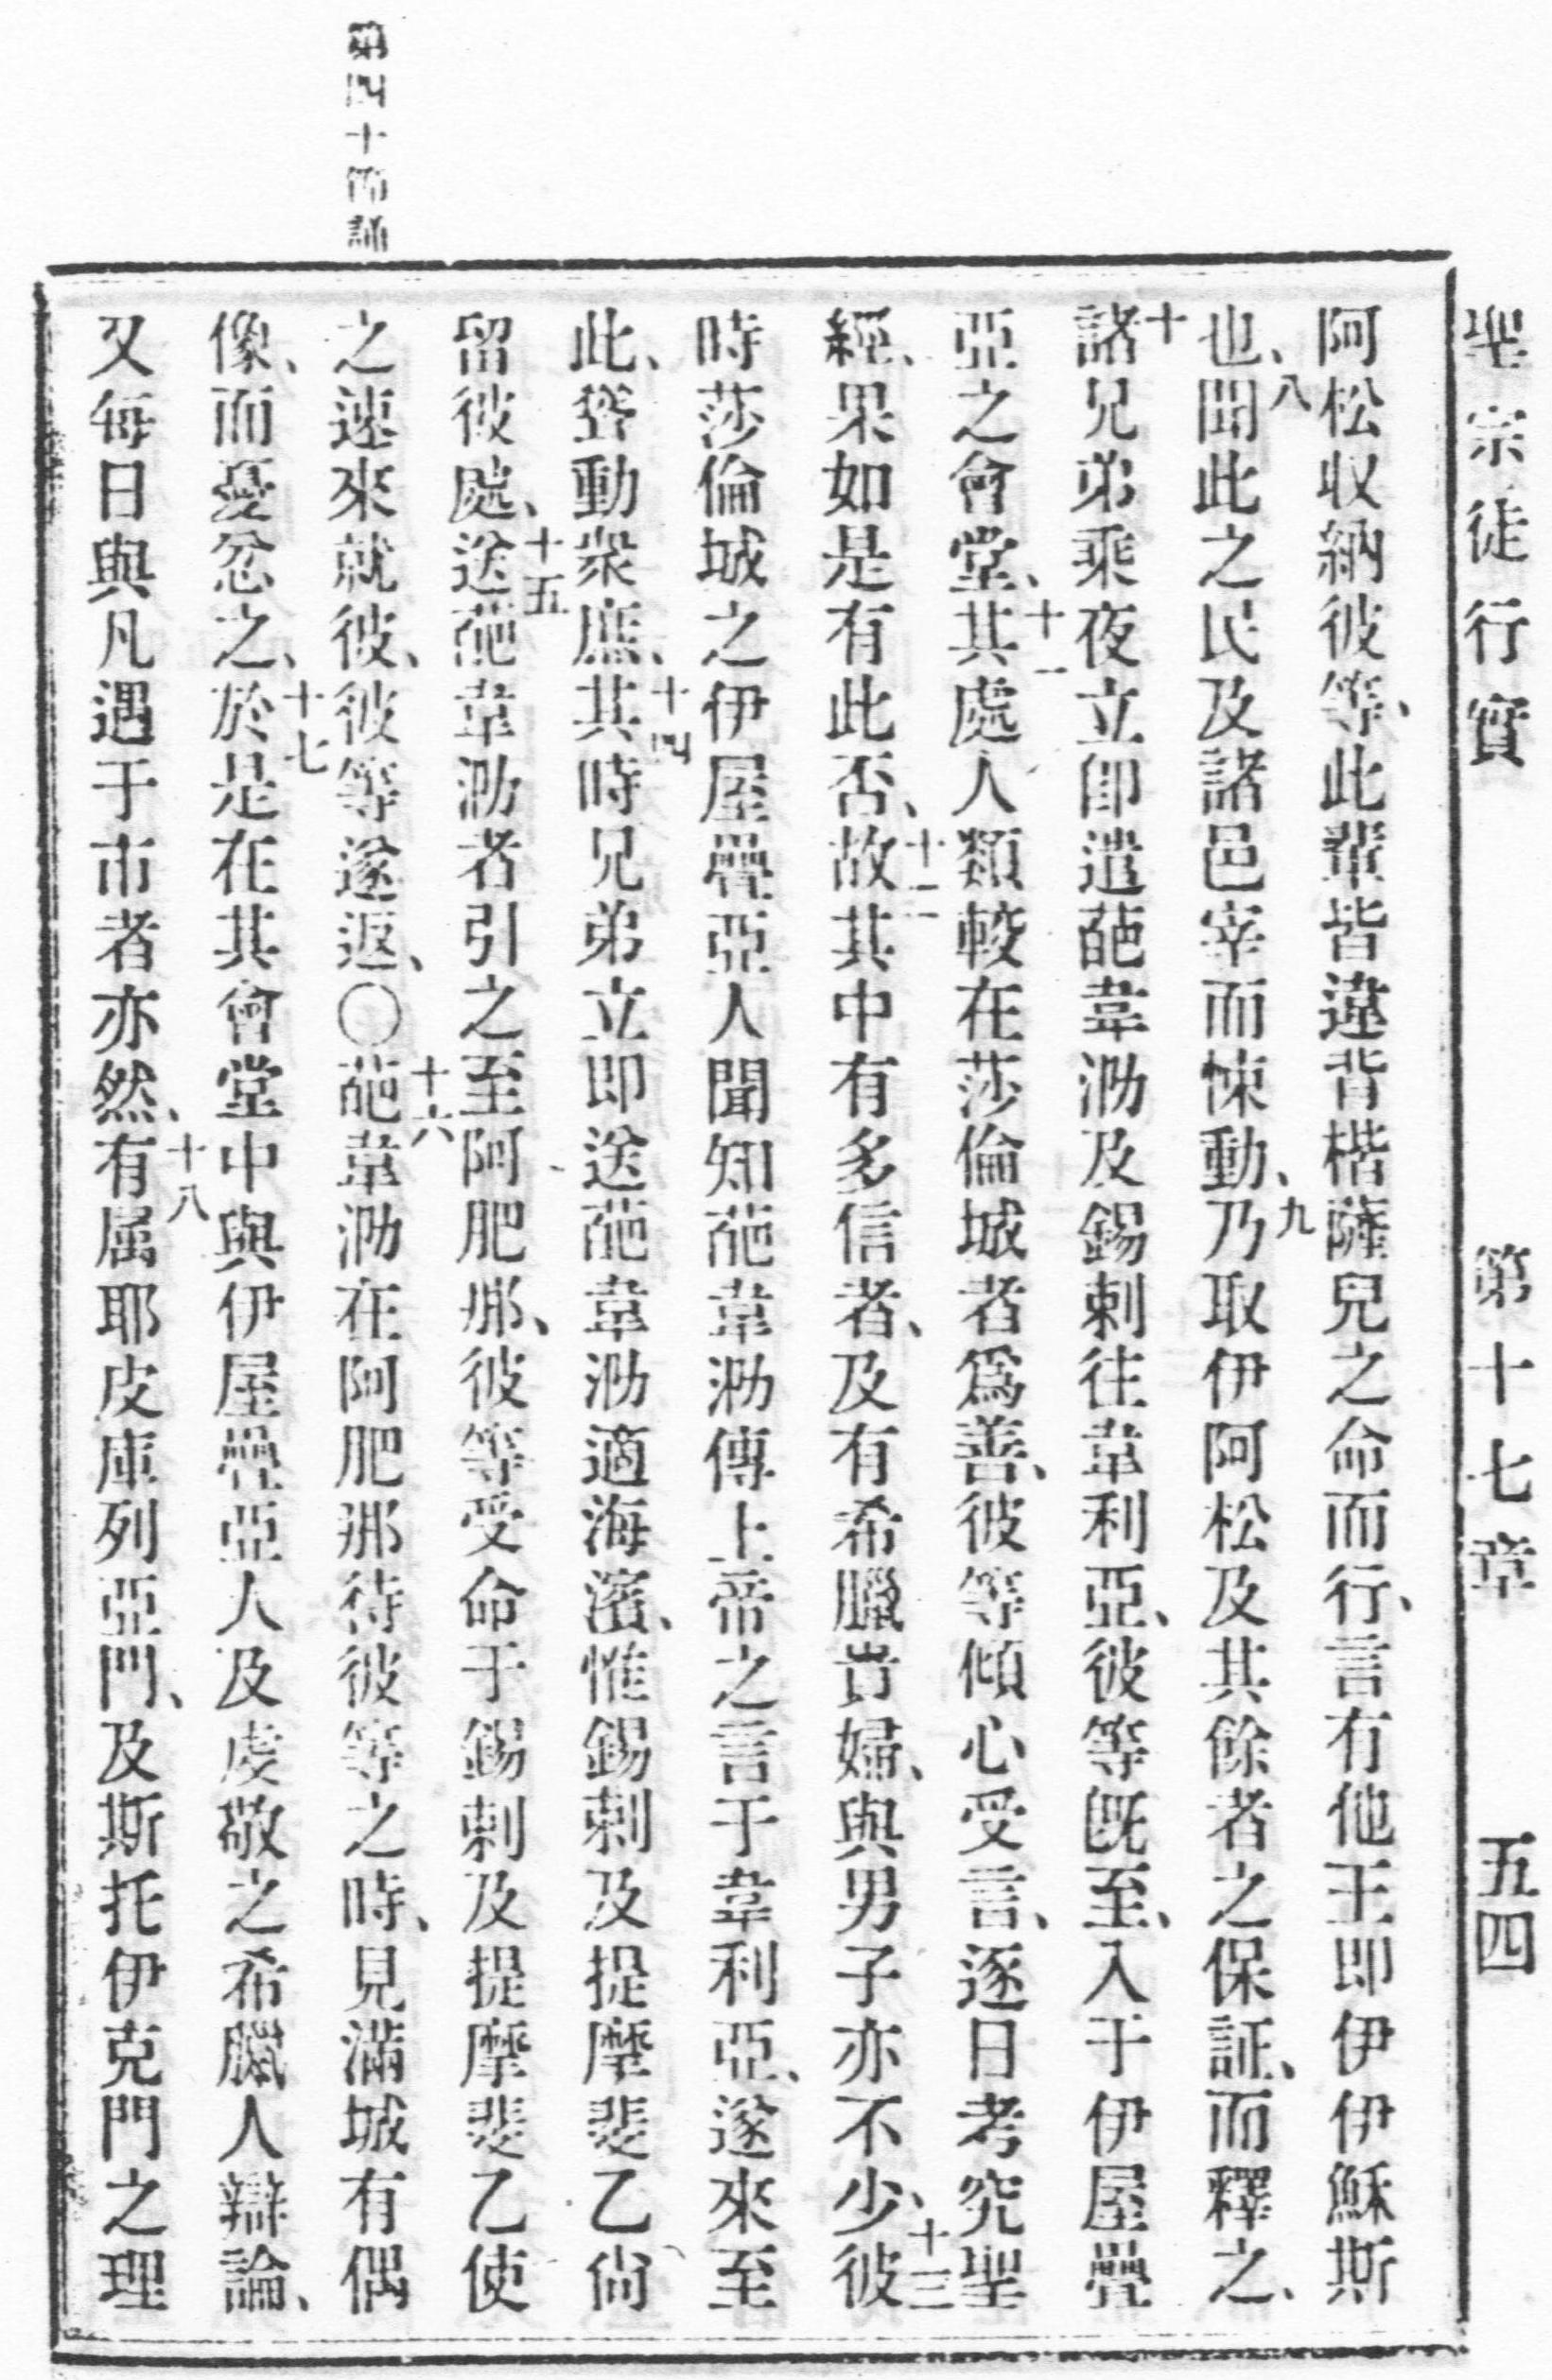 聖宗徒行實 第十七章 五四
阿松收納彼等、此輩皆違背楷薩兒之命而行、言有他王即伊伊穌斯
也、八聞此之民及諸邑宰而悚動、九乃取伊阿松及其餘者之保証、而釋之、
十諸兄弟乘夜立卽遣葩韋泐及錫剌往韋利亞、彼等既至、入于伊屋疊
亞之會堂、十一其處人類較在莎倫城者爲善、彼等傾心受言、逐日考究聖
經、果如是有此否、十二故其中有多信者、及有希臘貴婦、與男子亦不少、十三彼
時莎倫城之伊屋疊亞人聞知葩韋泐傳上帝之言于韋利亞、遂來至
此、聳動衆庶、十四其時兄弟立即送葩韋泐適海濱、惟錫剌及提摩斐乙尙
留彼處、十五送葩韋泐者引之至阿肥那、彼等受命于錫剌及提摩斐乙使
之速來就彼、彼等遂返、〇十六葩韋泐在阿肥那待彼等之時、見滿城有偶
像、而憂忿之、十七於是在其會堂中與伊屋疊亞人及虔敬之希臘人辯論、
又每日與凡遇于市者亦然、十八有屬耶皮庫列亞門、及斯托伊克門之理
第四十節誦